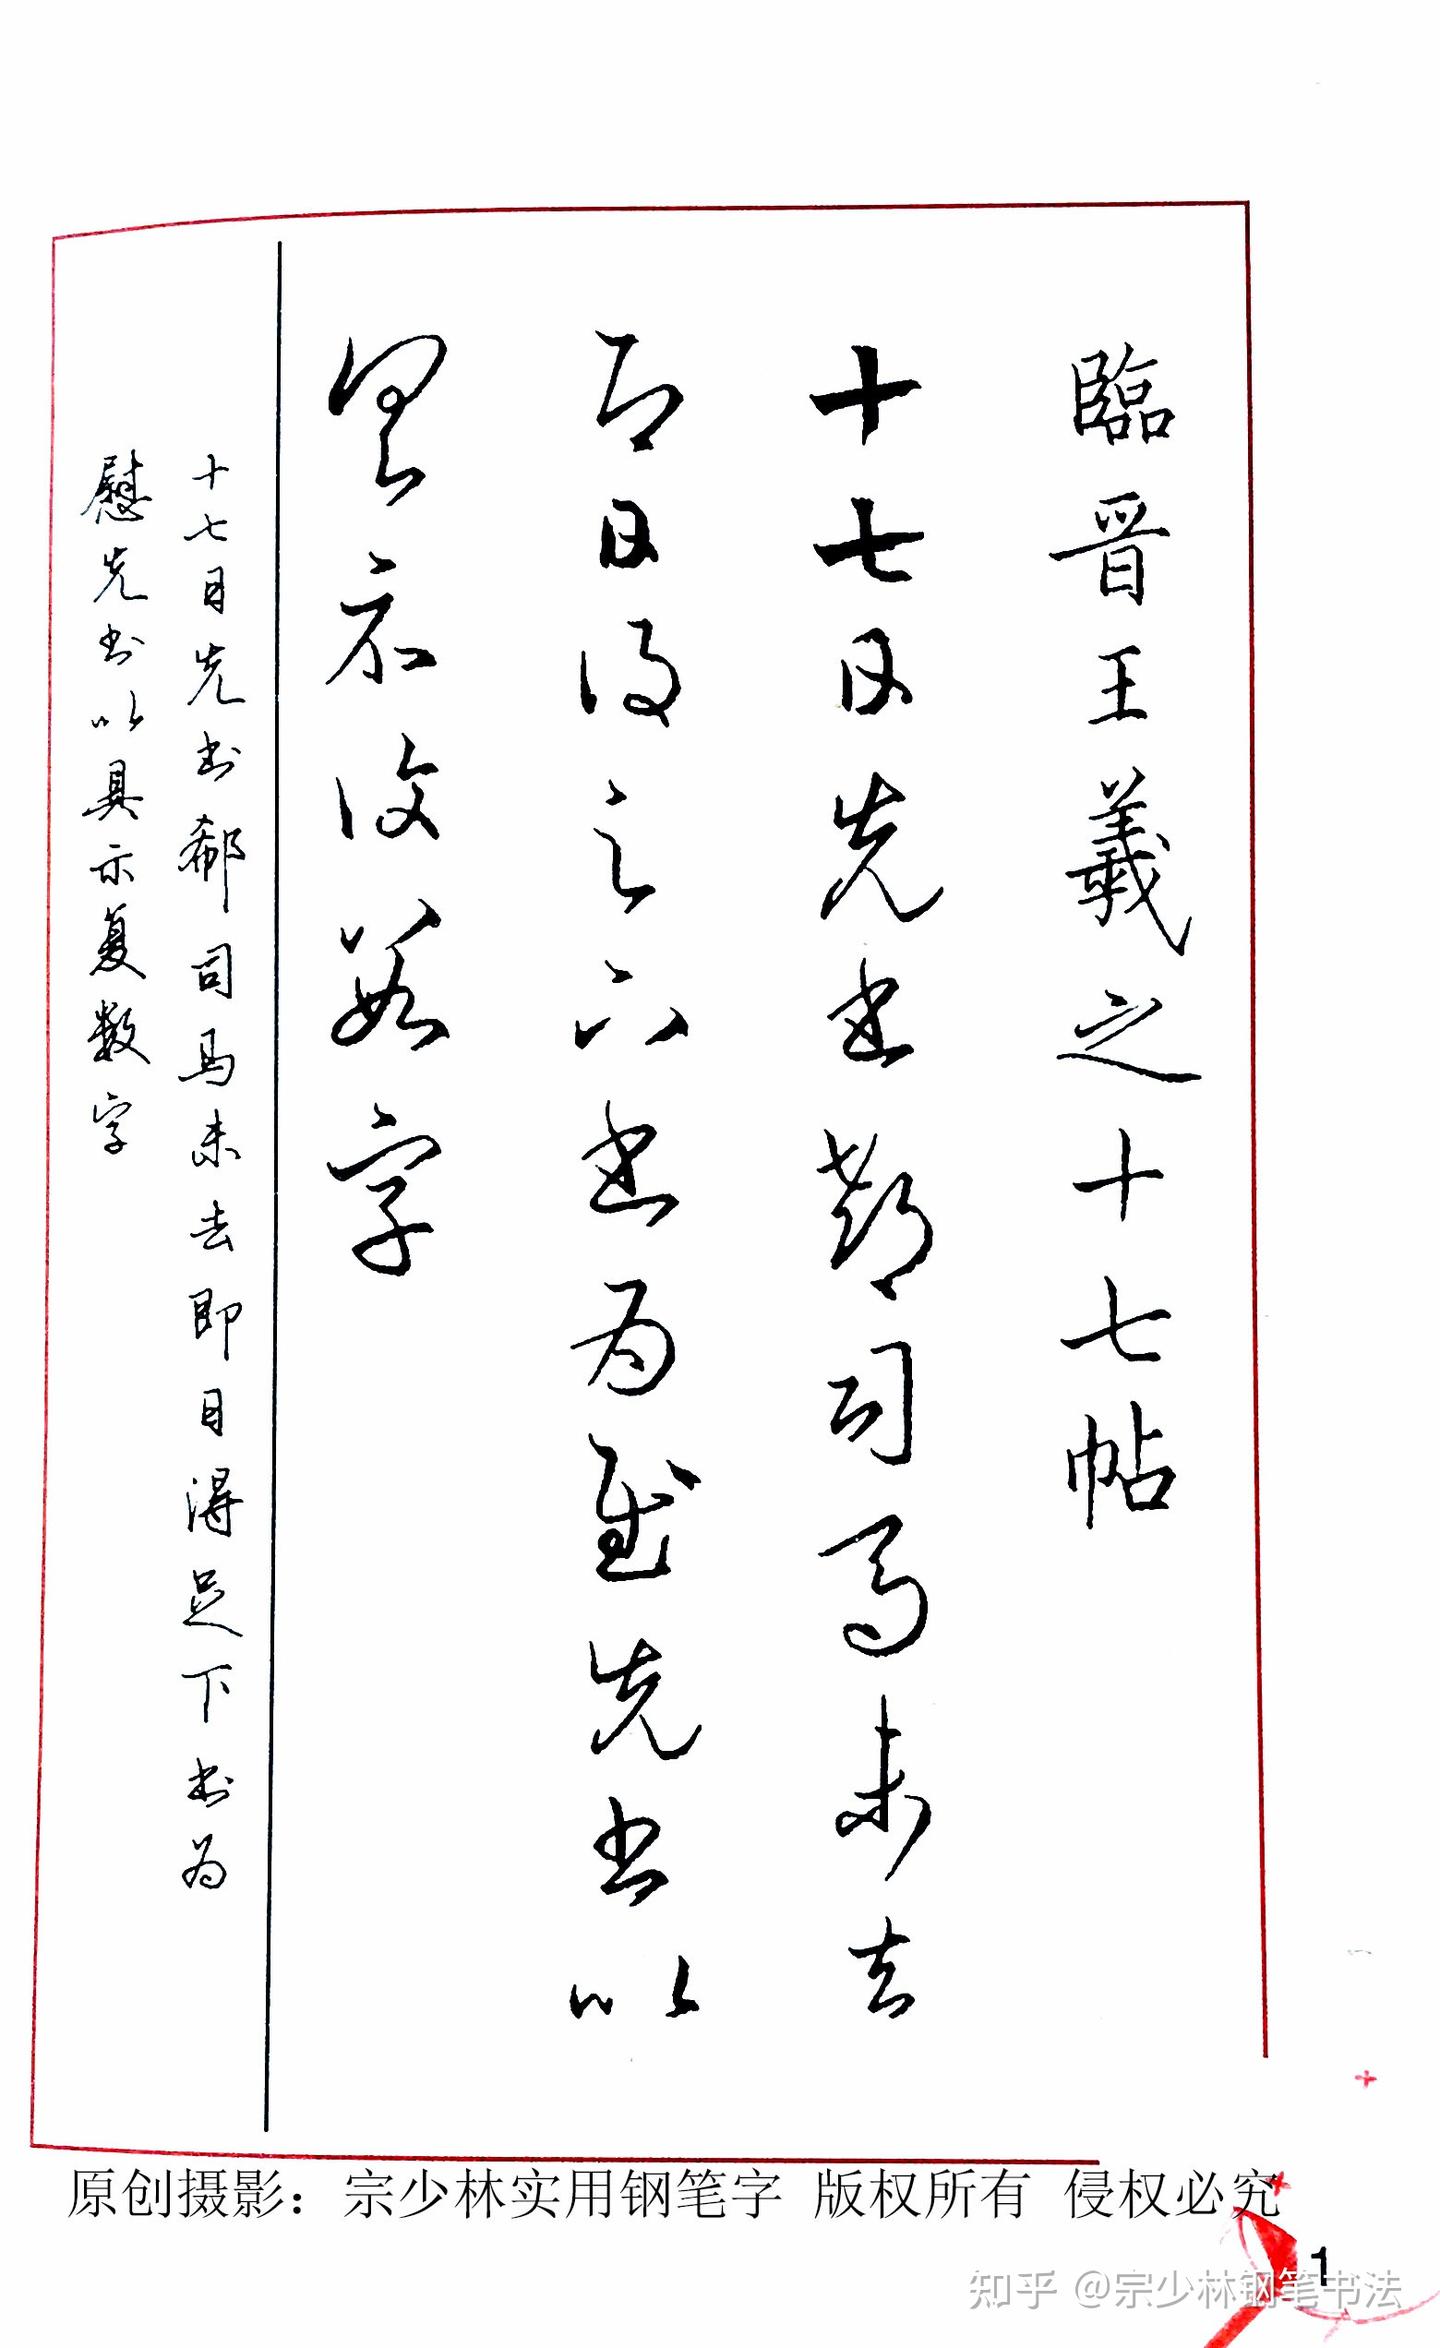 臨晉王羲之十七帖
十七日先書郗司馬未去
即日得足下書為慰先書以
具示復數字
十七日先书郗司马未去即日得足下书为
慰先书以具示复数字
原创摄影：宗少林实用钢笔字 版权所有 侵权必究
1
知乎 @宗少林钢笔书法